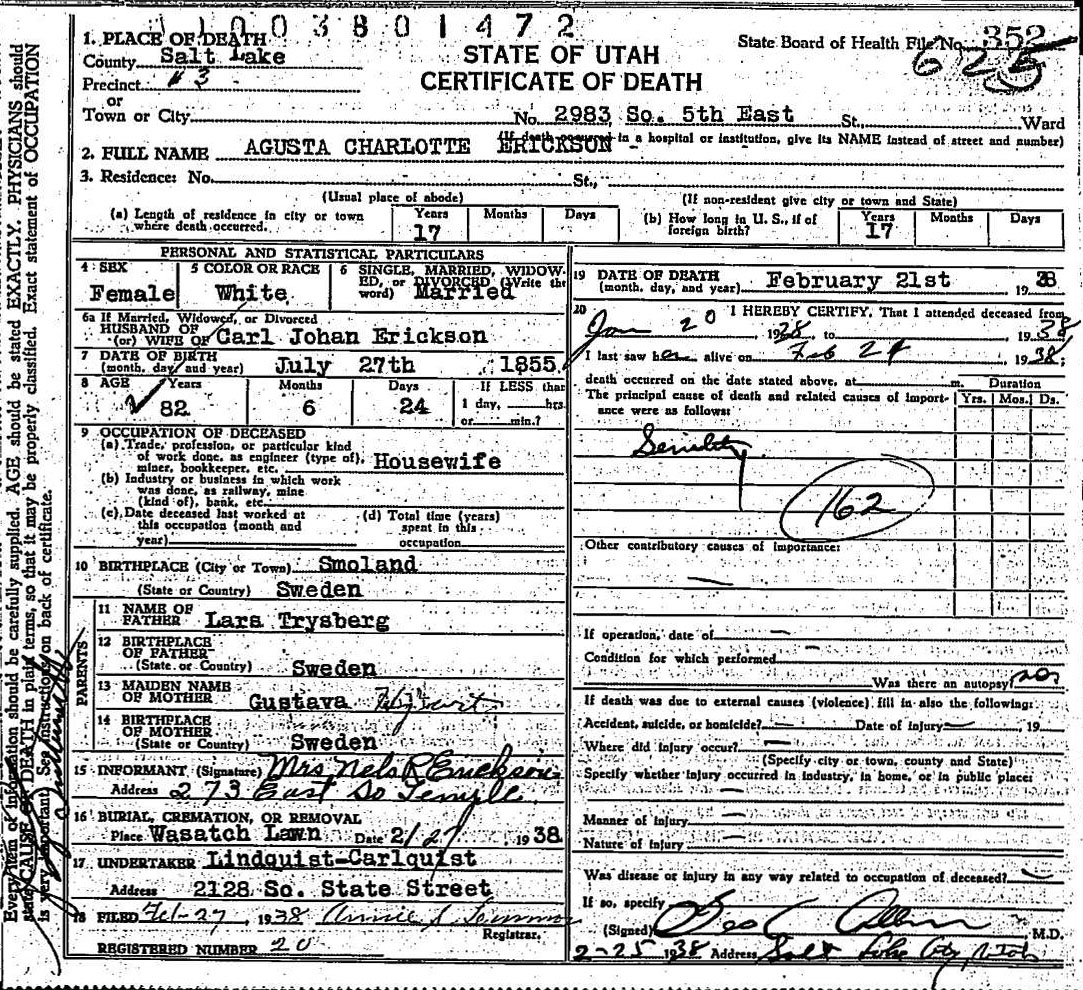 11003801472
1. PLACE OF DEATH
County Salt Lake
Precinct #3
or
Town or City
STATE OF UTAH
CERTIFICATE OF DEATH
State Board of Health File No. 352
625
No. 2983 So. 5th East St. Ward
(If death occurred in a hospital or institution, give its NAME instead of street and number)
2. FULL NAME AGUSTA CHARLOTTE ERICKSON
3. Residence: No. St.,
(Usual place of abode) (If non-resident give city or town and State)
(a) Length of residence in city or town where death occurred. Years 17 Months Days
(b) How long in U. S., if of foreign birth? Years 17 Months Days
PERSONAL AND STATISTICAL PARTICULARS
4 SEX Female
5 COLOR OR RACE White
6 SINGLE, MARRIED, WIDOWED, or DIVORCED (Write the word) Married
6a If Married, Widowed, or Divorced
HUSBAND OF
(or) WIFE OF Carl Johan Erickson
7 DATE OF BIRTH
(month, day and year) July 27th 1855
8 AGE Years 82 Months 6 Days 24 If LESS than 1 day, hrs. or min.?
9 OCCUPATION OF DECEASED
(a) Trade, profession, or particular kind
of work done, as engineer (type of),
miner, bookkeeper, etc. Housewife
(b) Industry or business in which work
was done, as railway, mine
(kind of), bank, etc.
(c) Date deceased last worked at
this occupation (month and
year)
(d) Total time (years)
spent in this
occupation
10 BIRTHPLACE (City or Town) Smoland
(State or Country) Sweden
PARENTS
11 NAME OF
FATHER Lars Trysberg
12 BIRTHPLACE
OF FATHER
(State or Country) Sweden
13 MAIDEN NAME
OF MOTHER Gustava
14 BIRTHPLACE
OF MOTHER
(State or Country) Sweden
15 INFORMANT (Signature) Mrs Nels R Erickson
Address 273 East So Temple
16 BURIAL, CREMATION, OR REMOVAL
Place Wasatch Lawn Date 2/27 1938
17 UNDERTAKER Lindquist-Carlquist
Address 2128 So. State Street
18 FILED Feb-27 1938 Annie
Registrar.
REGISTERED NUMBER 20
19 DATE OF DEATH
(month, day, and year) February 21st 1938
20 I HEREBY CERTIFY, That I attended deceased from
Jan 20 1938 to 1938
I last saw her alive on Feb 1938;
death occurred on the date stated above, at m.
The principal cause of death and related causes of importance were as follows:
Duration
Yrs. Mos. Ds.
Senility
162
Other contributory causes of importance:
If operation, date of —
Condition for which performed —
Was there an autopsy? no
If death was due to external causes (violence) fill in also the following:
Accident, suicide, or homicide? — Date of injury — , 19
Where did injury occur? —
(Specify city or town, county and State)
Specify whether injury occurred in industry, in home, or in public place:
—
Manner of injury —
Nature of injury —
Was disease or injury in any way related to occupation of deceased? —
If so, specify
(Signed) Geo M.D.
2-25 1938 Address Salt Lake City, Utah
Every item of information should be carefully supplied. AGE should be stated EXACTLY. PHYSICIANS should
state CAUSE OF DEATH in plain terms, so that it may be properly classified. Exact statement of OCCUPATION
is very important. See instructions on back of certificate.